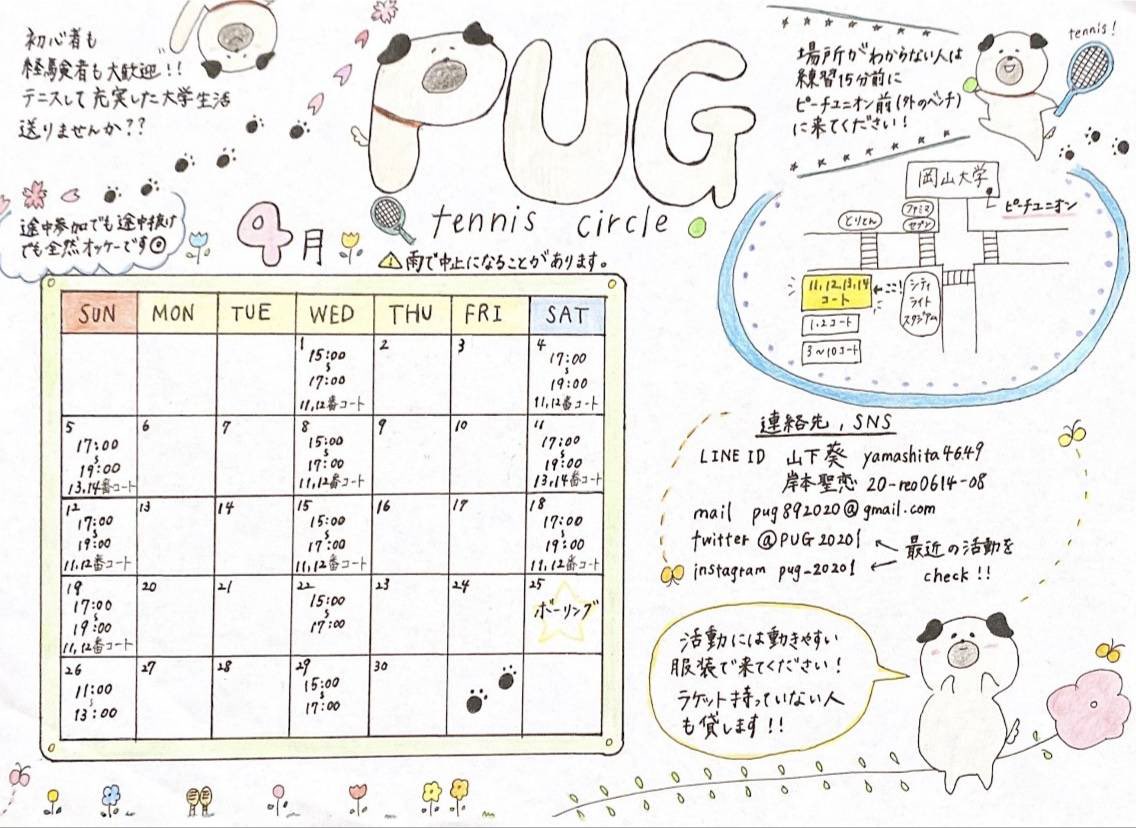 初心者も
経験者も大歓迎!!
テニスして充実した大学生活
送りませんか??
PUG
tennis circle
tennis!
場所がわからない人は
練習15分前に
ピーチユニオン前(外のベンチ)
に来てください!
途中参加でも途中抜け
でも全然オッケーです
4月
⚠雨で中止になることがあります。
岡山大学
ピーチユニオン
とりとん
ファミマ
セブン
11,12,13,14
コート
←ここ!
シティ
ライト
スタジアム
1,2コート
3~10コート
SUN MON TUE WED THU FRI SAT
1 2 3 4
15:00 17:00
~ ~
17:00 19:00
11,12番コート 11,12番コート
5 6 7 8 9 10 11
17:00 15:00 17:00
~ ~ ~
19:00 17:00 19:00
13,14番コート 11,12番コート 13,14番コート
12 13 14 15 16 17 18
17:00 15:00 17:00
~ ~ ~
19:00 17:00 19:00
11,12番コート 11,12番コート 11,12番コート
19 20 21 22 23 24 25
17:00 15:00 ボーリング
~ ~
19:00 17:00
11,12番コート
26 27 28 29 30
11:00 15:00
~ ~
13:00 17:00
連絡先,SNS
LINE ID 山下葵 yamashita4649
岸本聖恋 20-reo0614-08
mail pug892020@gmail.com
twitter @PUG20201
instagram pug_20201
最近の活動を
check!!
活動には動きやすい
服装で来てください!
ラケット持っていない人
も貸します!!